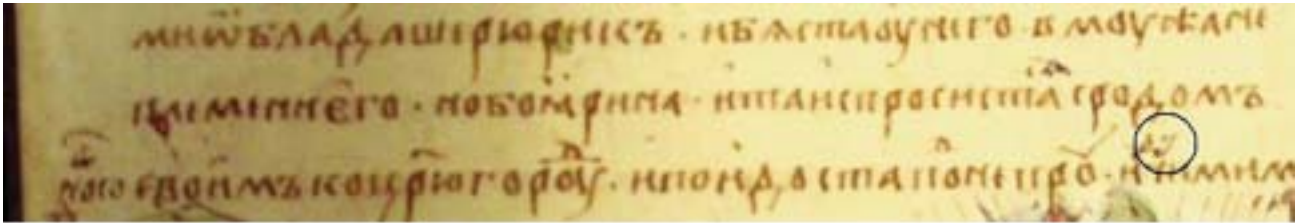 миѡбладашерюрикъ · ибѧстаоунего · в моужане
племениего · нобоѧрина · итаиспросистасродомъ
своимъкоцрюгороу · ипоидостапонепро · имим